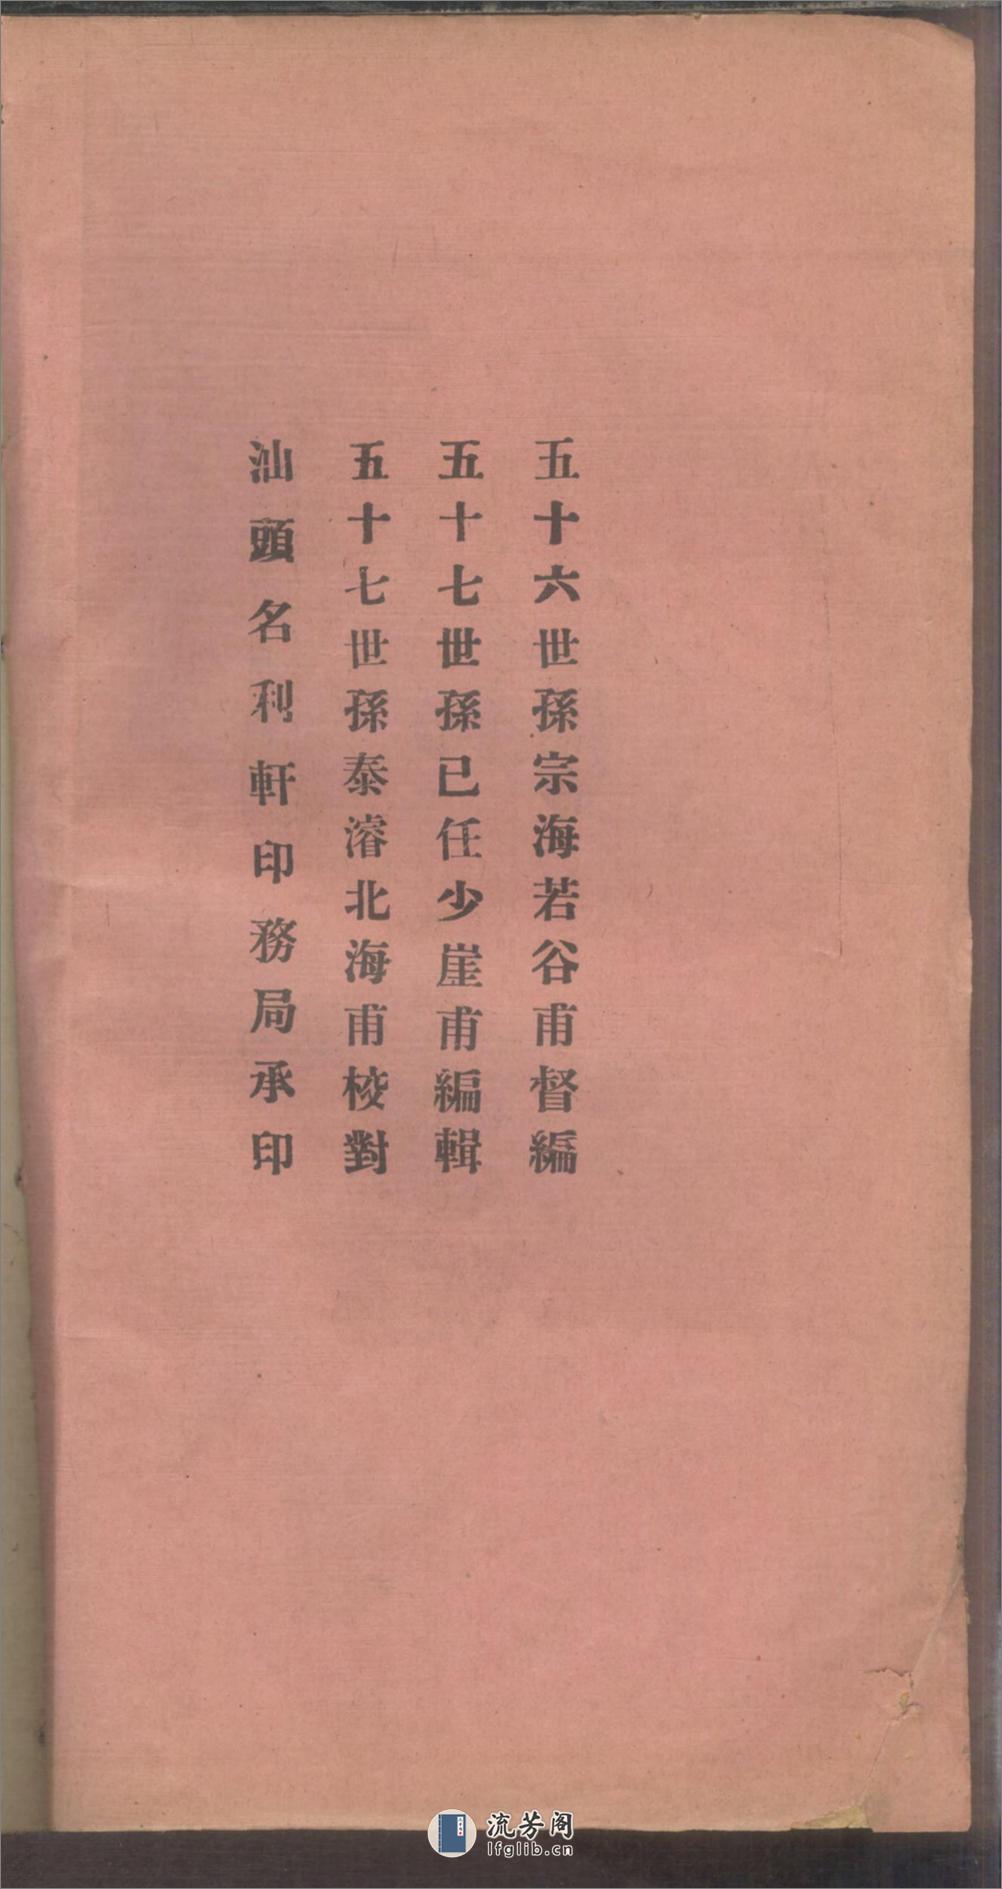 五十六世孫宗海若谷甫督編
五十七世孫已任少崖甫編輯
五十七世孫泰濬北海甫校對
汕頭名利軒印務局承印
流芳阁
lfglib.cn